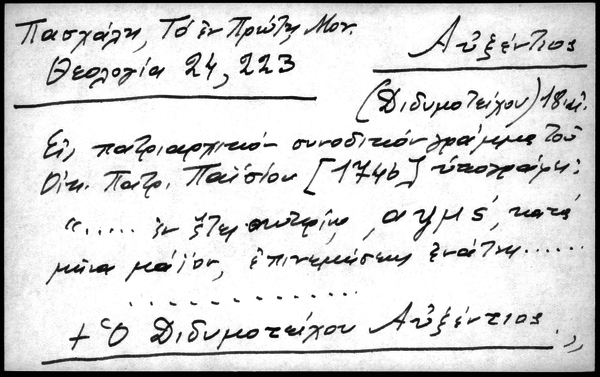 Πασχάλη, Τό ἐν Πρώτῃ Μον.
Θεολογία 24, 223
Αὐξέντιος
(Διδυμοτείχου) 18 αἰ.
Εἰς πατριαρχικόν συνοδικόν γράμμα τοῦ
Οἰκ. Πατρ. Παϊσίου [1746] ὑπογράφει:
"..... ἐν ἔτει σωτηρίῳ, αψμς΄, κατά
μῆνα μάϊον, ἐπινεμήσεως ἐνάτης......
. . . . . . . . . . . . .
+ Ὁ Διδυμοτείχου Αὐξέντιος.,,